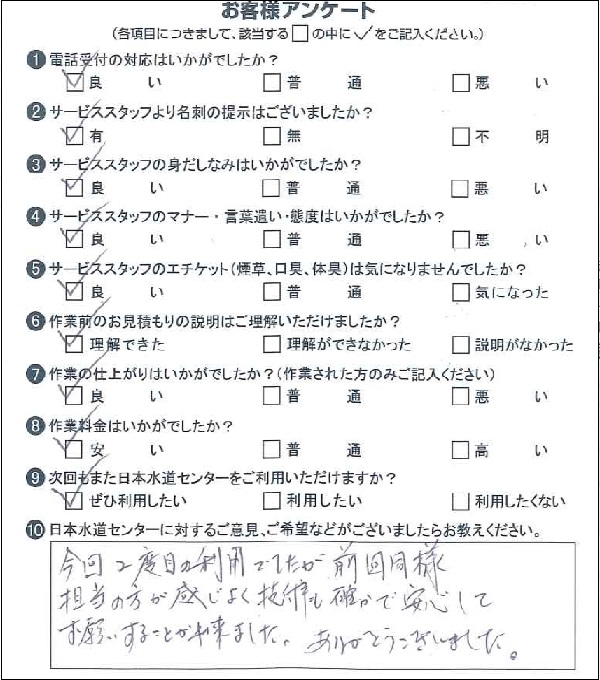 お客様アンケート
(各項目につきまして、該当する□の中に✓をご記入ください。)
❶ 電話受付の対応はいかがでしたか？
☑ 良い □ 普通 □ 悪い
❷ サービススタッフより名刺の提示はございましたか？
☑ 有 □ 無 □ 不明
❸ サービススタッフの身だしなみはいかがでしたか？
☑ 良い □ 普通 □ 悪い
❹ サービススタッフのマナー・言葉遣い・態度はいかがでしたか？
☑ 良い □ 普通 □ 悪い
❺ サービススタッフのエチケット(煙草、口臭、体臭)は気になりませんでしたか？
☑ 良い □ 普通 □ 気になった
❻ 作業前のお見積もりの説明はご理解いただけましたか？
☑ 理解できた □ 理解ができなかった □ 説明がなかった
❼ 作業の仕上がりはいかがでしたか？(作業された方のみご記入ください)
☑ 良い □ 普通 □ 悪い
❽ 作業料金はいかがでしたか？
☑ 安い □ 普通 □ 高い
❾ 次回もまた日本水道センターをご利用いただけますか？
☑ ぜひ利用したい □ 利用したい □ 利用したくない
❿ 日本水道センターに対するご意見、ご希望などがございましたらお教えください。
今回2度目の利用でしたが前回同様
担当の方が感じよく技術も確かで安心して
お願いすることが出来ました。ありがとうございました。